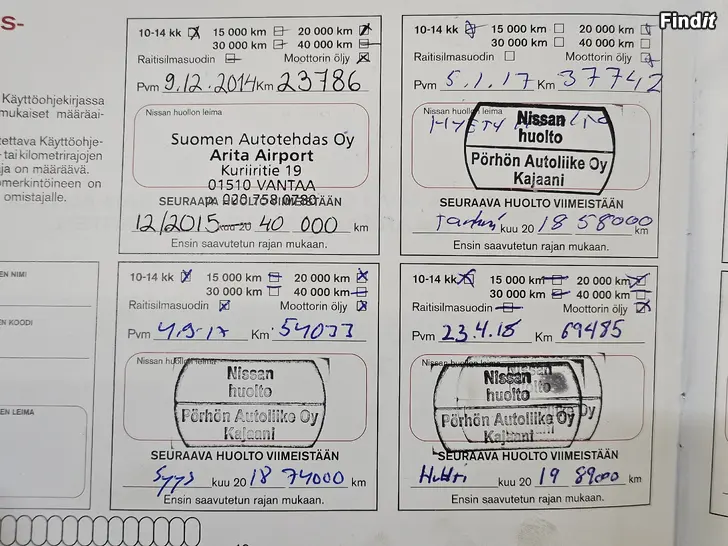 Findit
S-
Käyttöohjekirjassa
mukaiset määräai-
tettava Käyttöohje-
- tai kilometrirajojen
ja on määräävä.
merkintöineen on
omistajalle.
EN NIMI
EN KOODI
EN LEIMA
10-14 kk 15 000 km 20 000 km
30 000 km 40 000 km
Raitisilmasuodin Moottorin öljy
Pvm 9.12.2014 Km 23786
Nissan huollon leima
Suomen Autotehdas Oy
Arita Airport
Kuriiritie 19
01510 VANTAA
p. 020 758 0780
SEURAAVA HUOLTO VIIMEISTÄÄN
12/2015 kuu 20 40 000 km
Ensin saavutetun rajan mukaan.
10-14 kk 15 000 km 20 000 km
30 000 km 40 000 km
Raitisilmasuodin Moottorin öljy
Pvm 5.1.17 Km 37742
Nissan huollon leima
Nissan
huolto
Pörhön Autoliike Oy
Kajaani
SEURAAVA HUOLTO VIIMEISTÄÄN
kuu 20 18 58000 km
Ensin saavutetun rajan mukaan.
10-14 kk 15 000 km 20 000 km
30 000 km 40 000 km
Raitisilmasuodin Moottorin öljy
Pvm 4.9-17 Km 54033
Nissan huollon leima
Nissan
huolto
Pörhön Autoliike Oy
Kajaani
SEURAAVA HUOLTO VIIMEISTÄÄN
Syys kuu 20 18 74000 km
Ensin saavutetun rajan mukaan.
10-14 kk 15 000 km 20 000 km
30 000 km 40 000 km
Raitisilmasuodin Moottorin öljy
Pvm 23.4.18 Km 69485
Nissan huollon leima
Nissan
huolto
Pörhön Autoliike Oy
Kajaani
SEURAAVA HUOLTO VIIMEISTÄÄN
Huhti kuu 20 19 89000 km
Ensin saavutetun rajan mukaan.